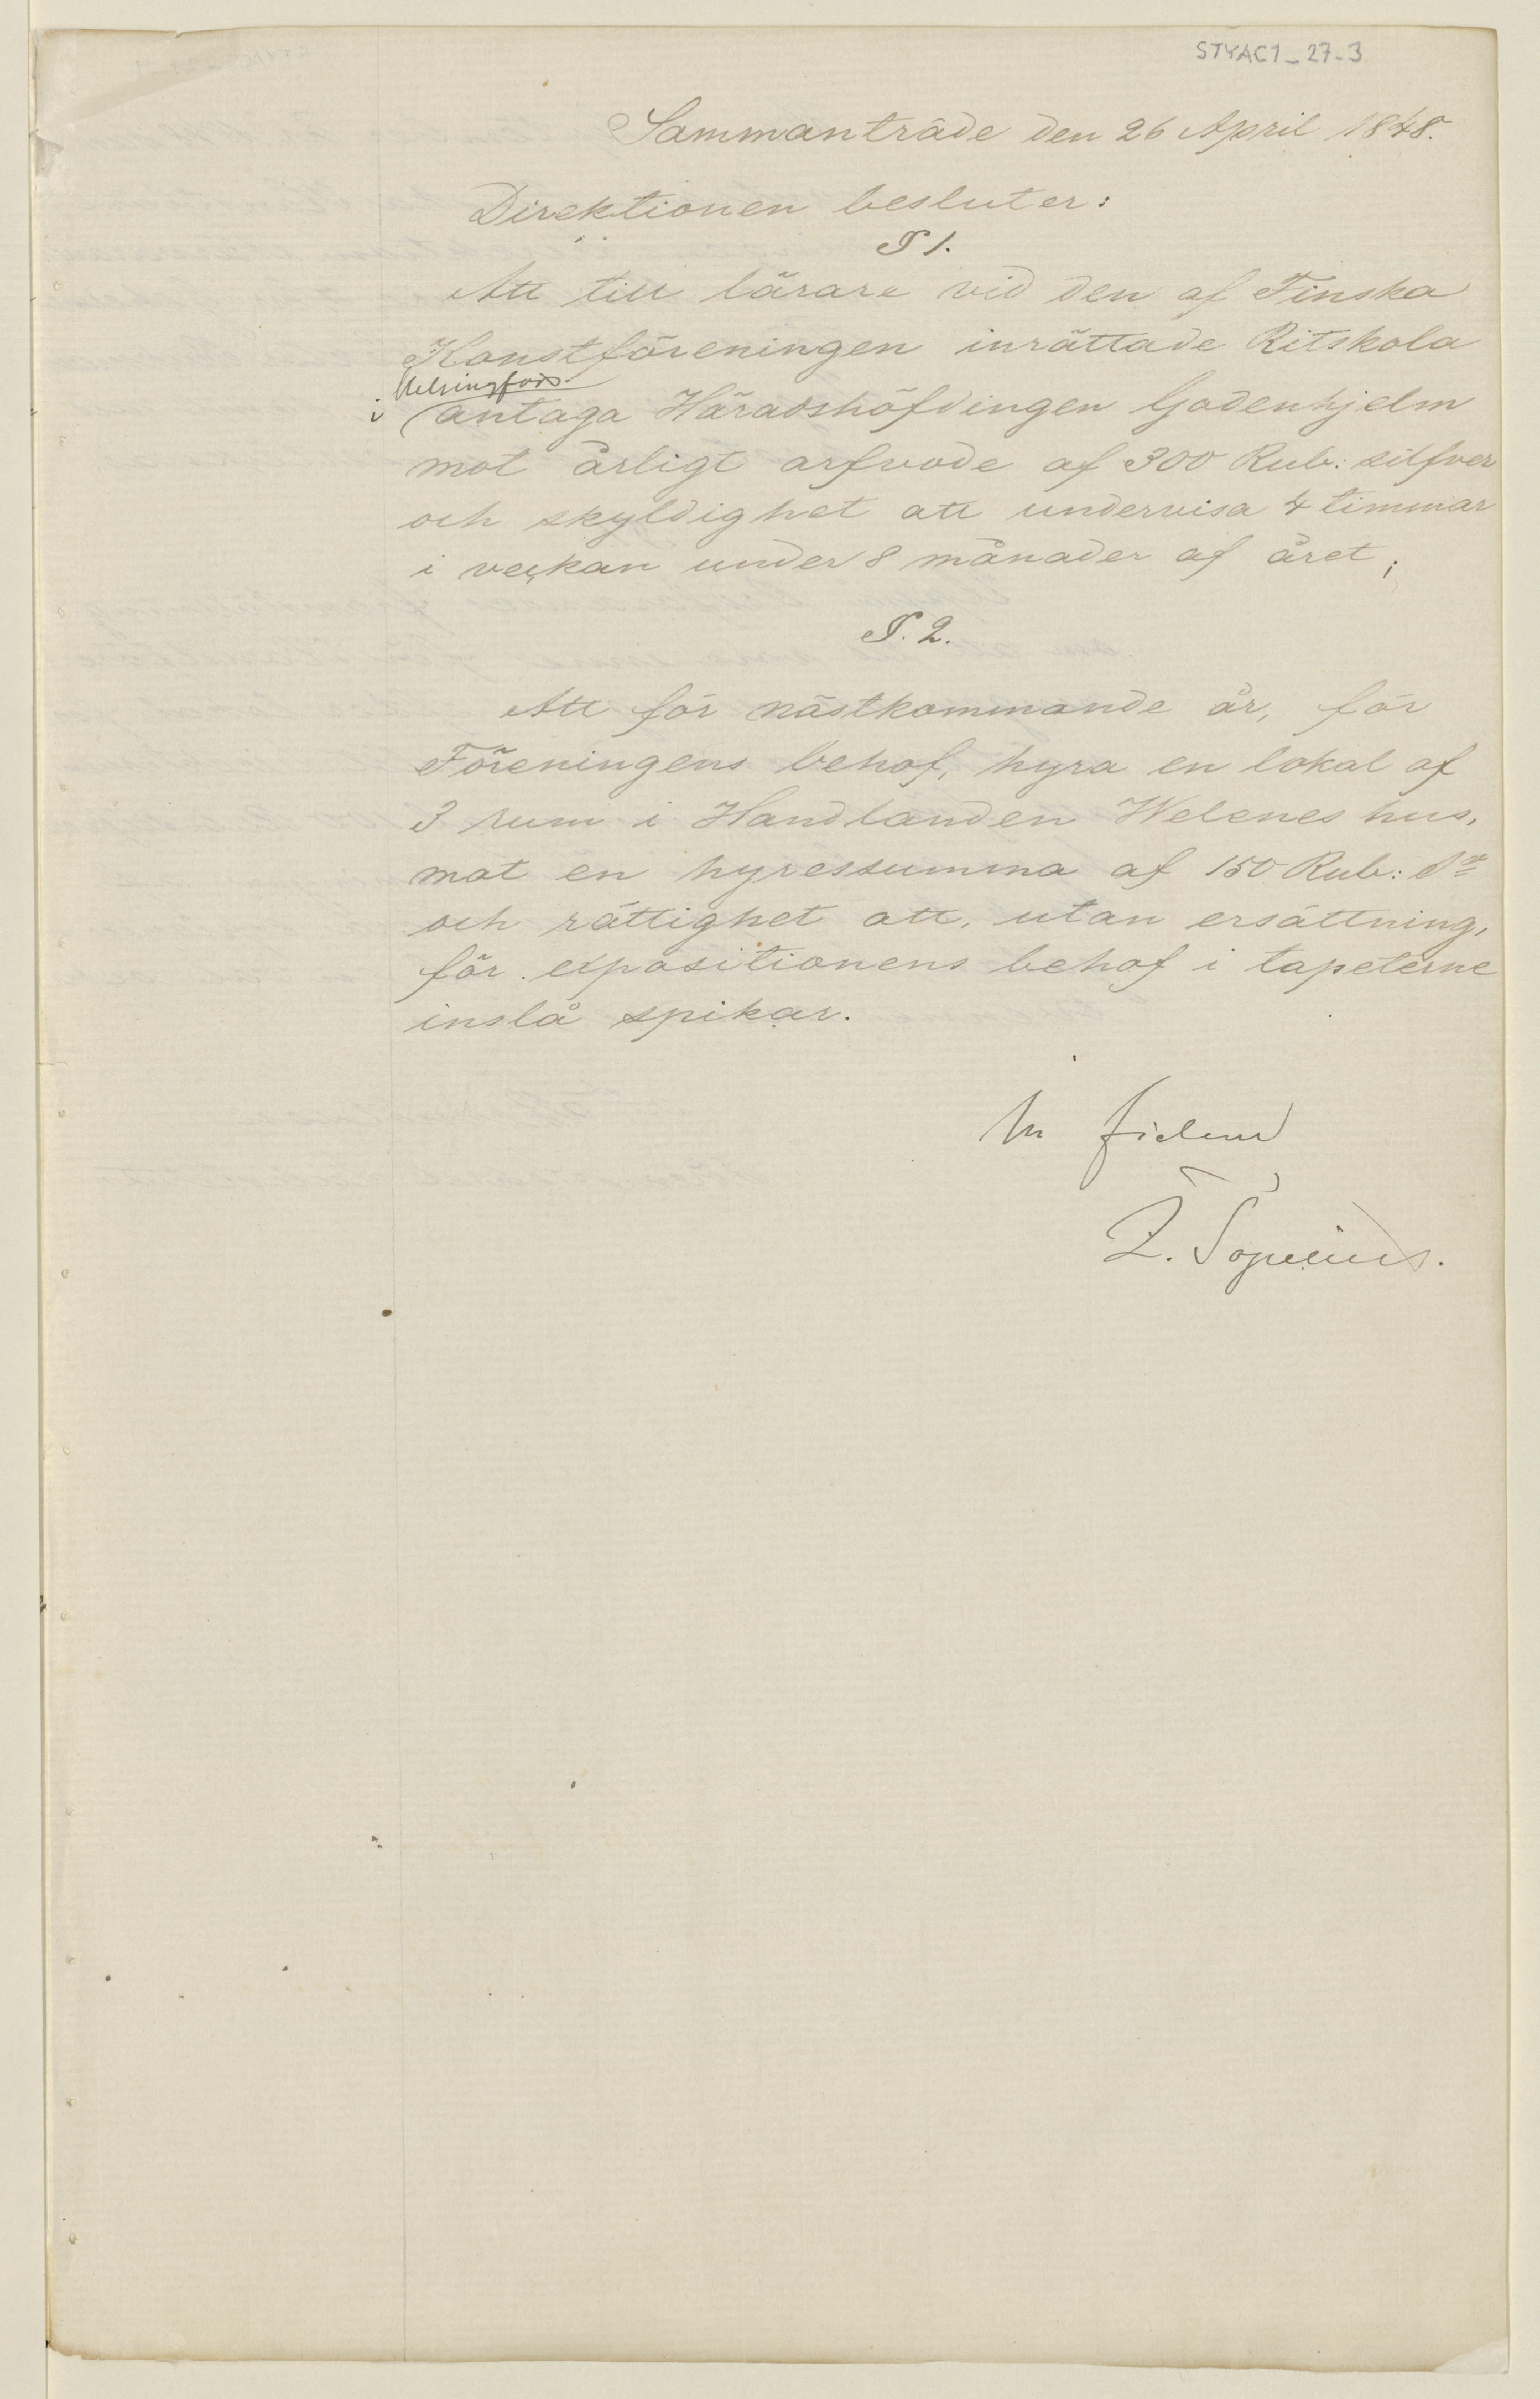 STYAC1_27-3
Sammanträde den 26 April 1848.
Direktionen besluter:
§ 1.
Att till lärare vid den af Finska
Konstföreningen inrättade Ritskola
i Helsingfors
antaga Häradshöfdingen Godenhjelm
mot årligt arfvode af 300 Rub: silfver
och skyldighet att undervisa 4 timmar
i veckan under 8 månader af året;
§. 2.
Att för nästkommande år, för
Föreningens behof, hyra en lokal af
3 rum i Handlanden Welenes hus,
mot en hyressumma af 150 Rub: Sr
och rättighet att, utan ersättning,
för expositionens behof i tapeterne
inslå spikar.
In fidem
Z. Topelius.